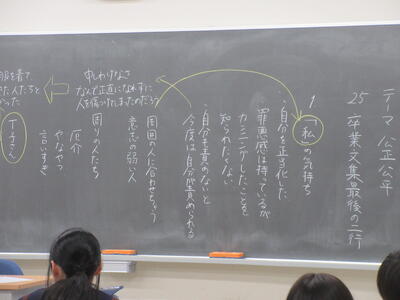 テーマ 公正公平
25 卒業文集最後の二行
1
「私」の気持ち
・自分を正当化した
罪悪感は持っているが
カンニングしたことを
知られたくない
・自分も責めないと
今度は自分が責められる
申しわけなさ
なんで正直になれずに
人を傷つけてしまったのだろう
周囲の人に合わせちゃう
意志の弱い人
周りの人たち
厄介
やなやつ
言いすぎ
T子さん
服を着て
た人たちと